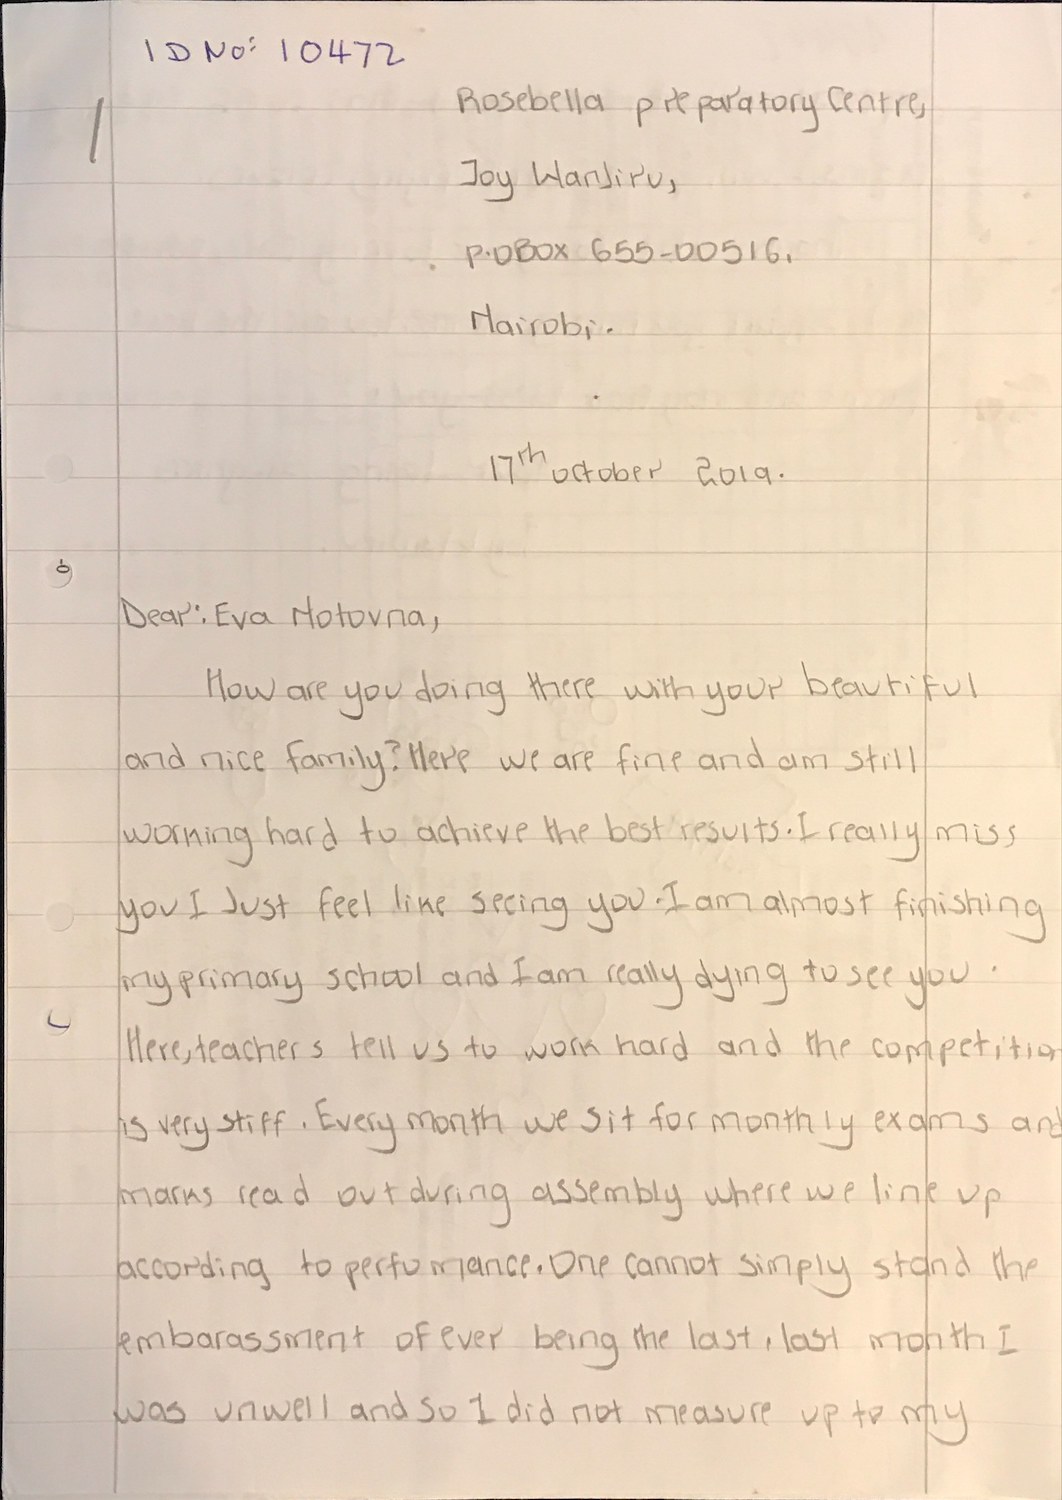 ID No: 10472
1
Rosebella preparatory Centre,
Joy Wanjiru,
P.O BOX 655-00516,
Nairobi.
17th october 2019.
Dear: Eva Hotovna,
How are you doing there with your beautiful
and nice family? Here we are fine and am still
working hard to achieve the best results. I really miss
you I Just feel like seeing you. I am almost finishing
my primary school and I am really dying to see you.
Here, teachers tell us to work hard and the competitio
is very stiff. Every month we sit for monthly exams and
marks read out during assembly where we line up
according to perfomance. One cannot simply stand the
embarassment of ever being the last, last month I
was unwell and so I did not measure up to my